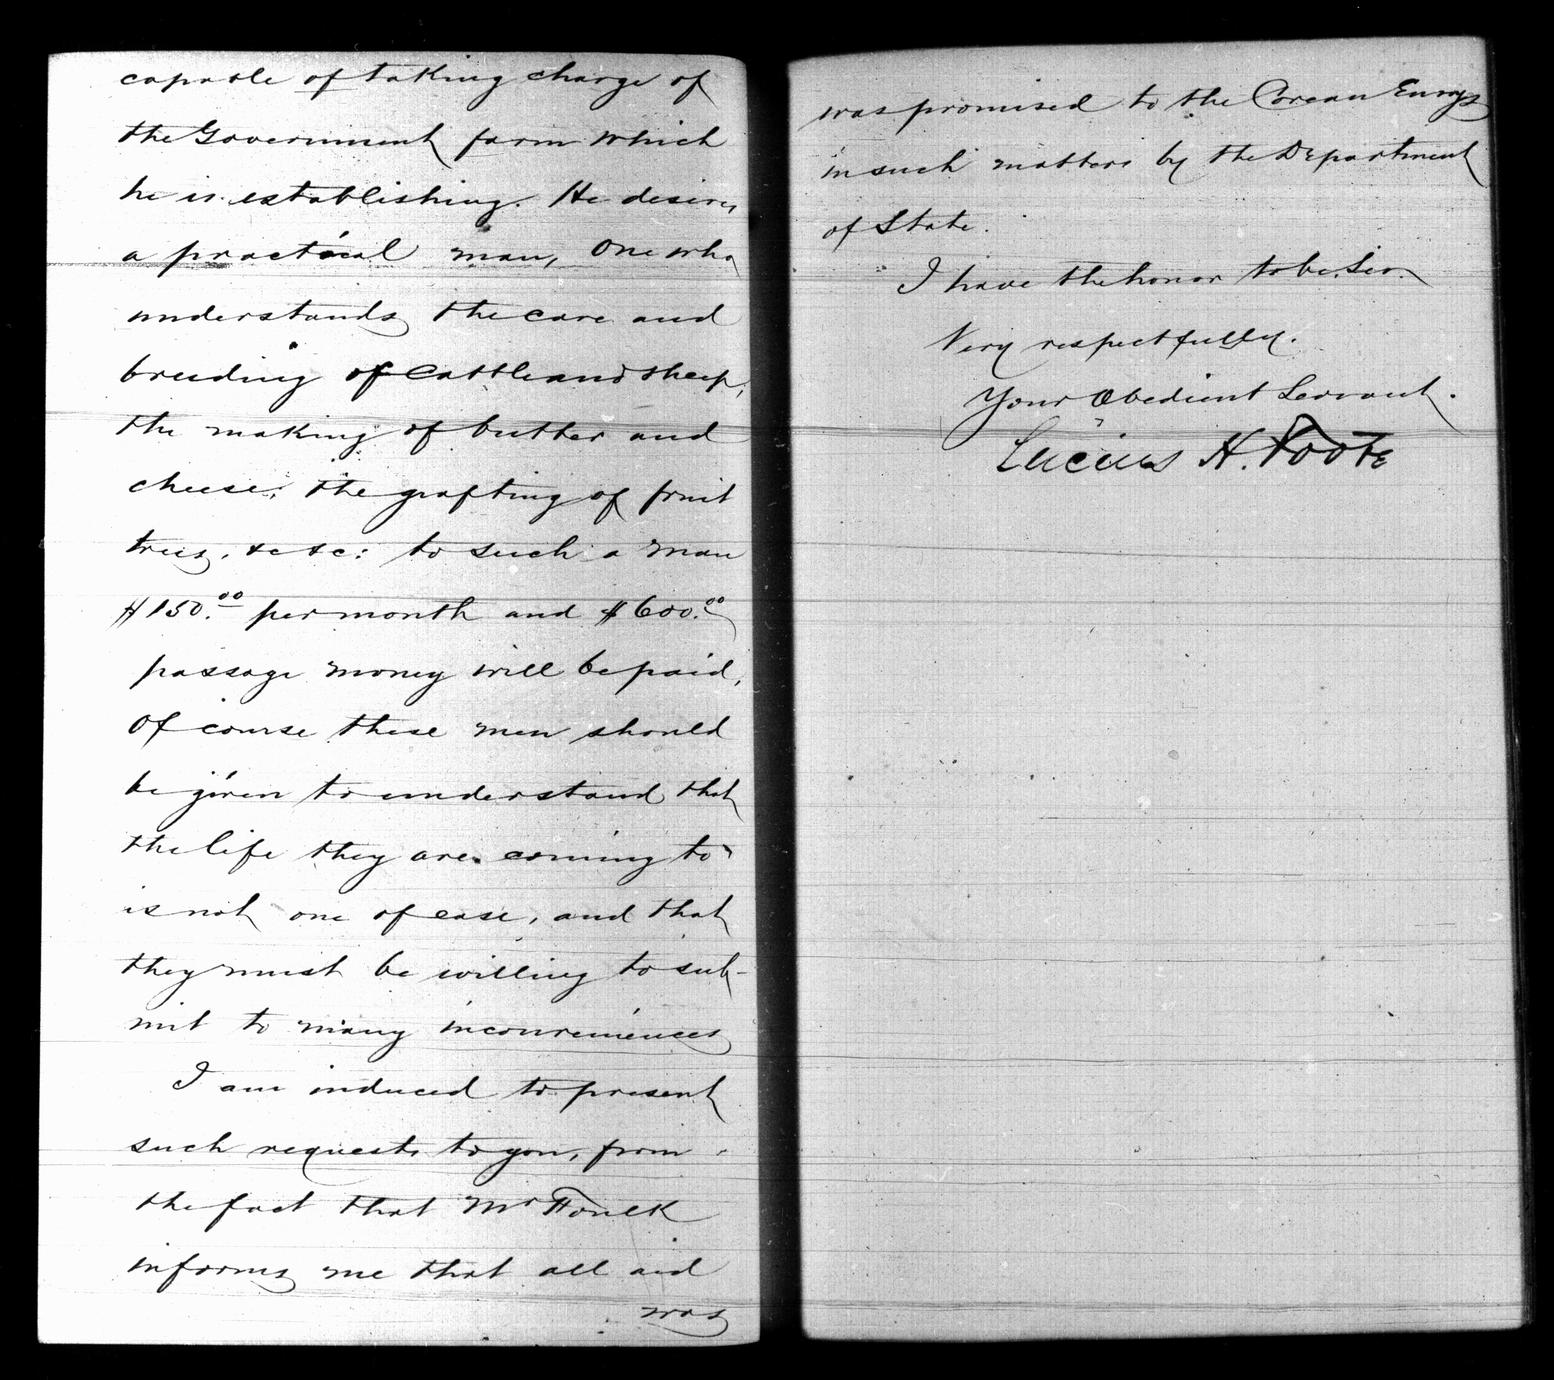 capable of taking charge of
the Government farm which
he is establishing. He desires
a practical man, One who
understands the care and
breeding of Cattle and sheep,
the making of butter and
cheese, the grafting of fruit
trees, &c &c: to such a man
$150.00 per month and $600.00
passage money will be paid,
Of course these men should
be given to understand that
the life they are coming to
is not one of ease, and that
they must be willing to sub-
mit to many inconveniences
I am induced to present
such requests to you, from
the fact that Mr Foulk
informs me that all aid
was
was promised to the Corean Envoys
in such matters by the Department
of State.
I have the honor to be. Sir.
Very respectfully.
Your Obedient Servant.
Lucius H. Foote